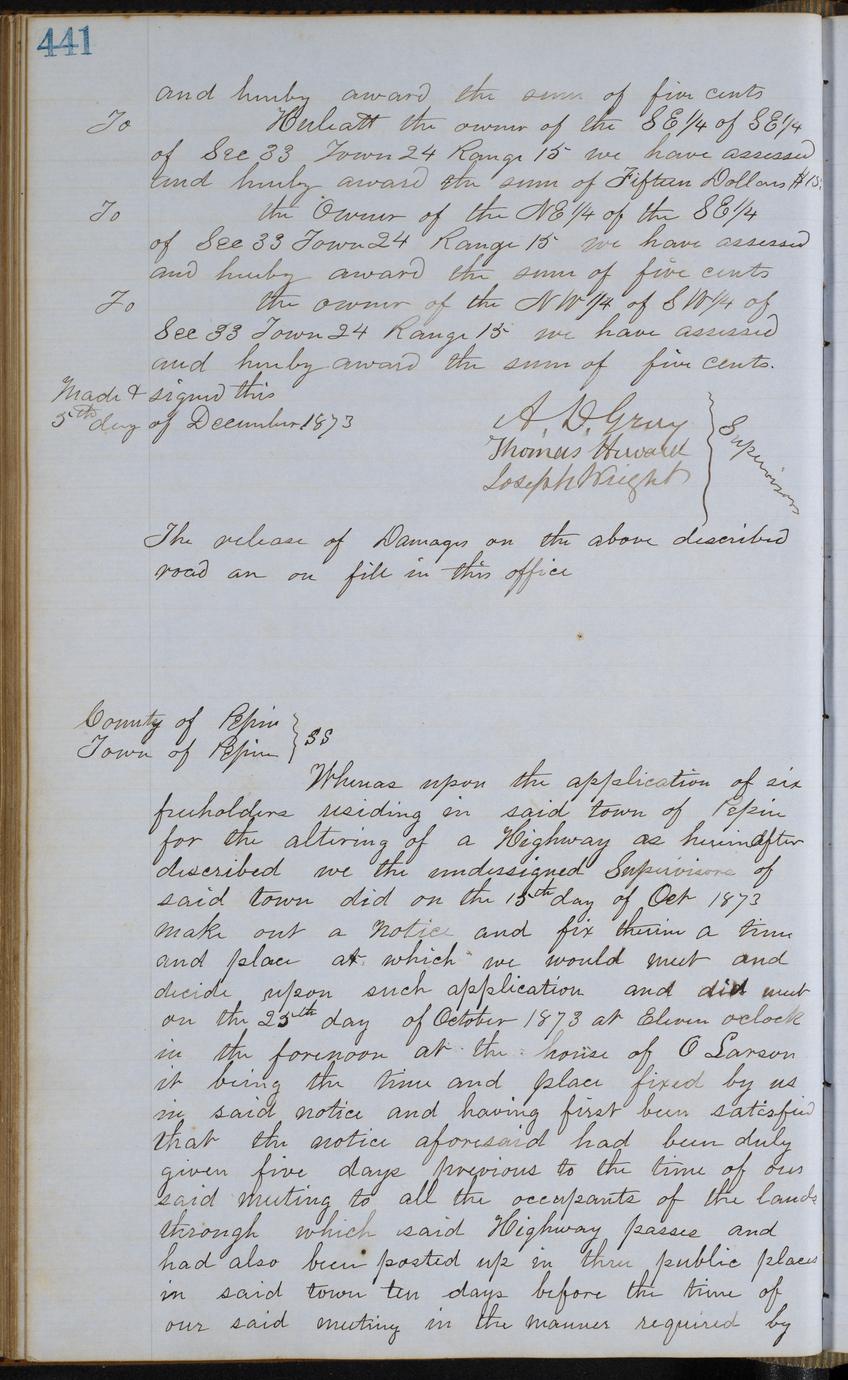 441
and hereby award the sum of five cents
To Huleatt the owner of the SE1/4 of SE1/4
of Sec 33 Town 24 Range 15 we have assessed
and hereby award the sum of Fifteen Dollars $15.
To the Owner of the NE1/4 of the SE1/4
of Sec 33 Town 24 Range 15 we have assessed
and hereby award the sum of five cents
To the owner of the NW1/4 of SW1/4 of
Sec 33 Town 24 Range 15 we have assessed
and hereby award the sum of five cents.
Made & signed this
5th day of December 1873
A. D. Gray
Thomas Howard
Joseph Wright
Supervisors
The release of Damages on the above described
road are on file in this office
County of Pepin
Town of Pepin } SS
Whereas upon the application of six
freeholders residing in said town of Pepin
for the altering of a Highway as hereinafter
described we the undersigned Supervisors of
said town did on the 15th day of Oct 1873
make out a Notice and fix therein a time
and place at which we would meet and
decide upon such application and did meet
on the 25th day of October 1873 at Eleven oclock
in the forenoon at the house of O Larson
it being the time and place fixed by us
in said notice and having first been satisfied
that the notice aforesaid had been duly
given five days previous to the time of our
said meeting to all the occupants of the lands
through which said Highway passes and
had also been posted up in three public places
in said town ten days before the time of
our said meeting in the manner required by